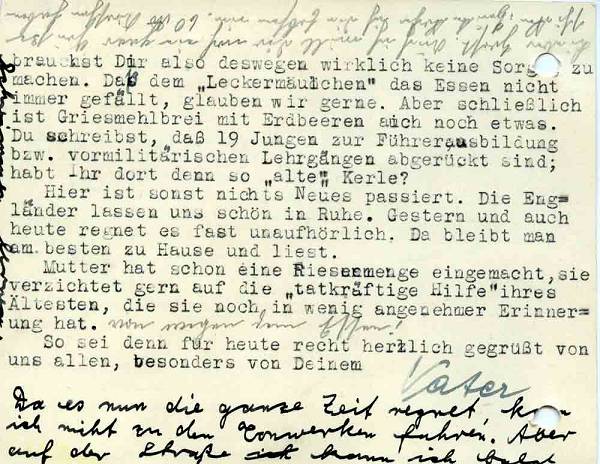 brauchst Dir also deswegen wirklich keine Sorgen zu
machen. Daß dem „Leckermäulchen" das Essen nicht
immer gefällt, glauben wir gerne. Aber schließlich
ist Griesmehlbrei mit Erdbeeren auch noch etwas.
Du schreibst, daß 19 Jungen zur Führerausbildung
bzw. vormilitärischen Lehrgängen abgerückt sind;
habt Ihr dort denn so „alte" Kerle?
Hier ist sonst nichts Neues passiert. Die Eng=
länder lassen uns schön in Ruhe. Gestern und auch
heute regnet es fast unaufhörlich. Da bleibt man
am besten zu Hause und liest.
Mutter hat schon eine Riesenmenge eingemacht, sie
verzichtet gern auf die „tatkräftige Hilfe" ihres
Ältesten, die sie noch in wenig angenehmer Erinner=
ung hat.
So sei denn für heute recht herzlich gegrüßt von
uns allen, besonders von Deinem
Vater
Da es nun die ganze Zeit regnet, kann
ich nicht zu den Tonwerken fahren. Aber
auf der Straße kann ich bald